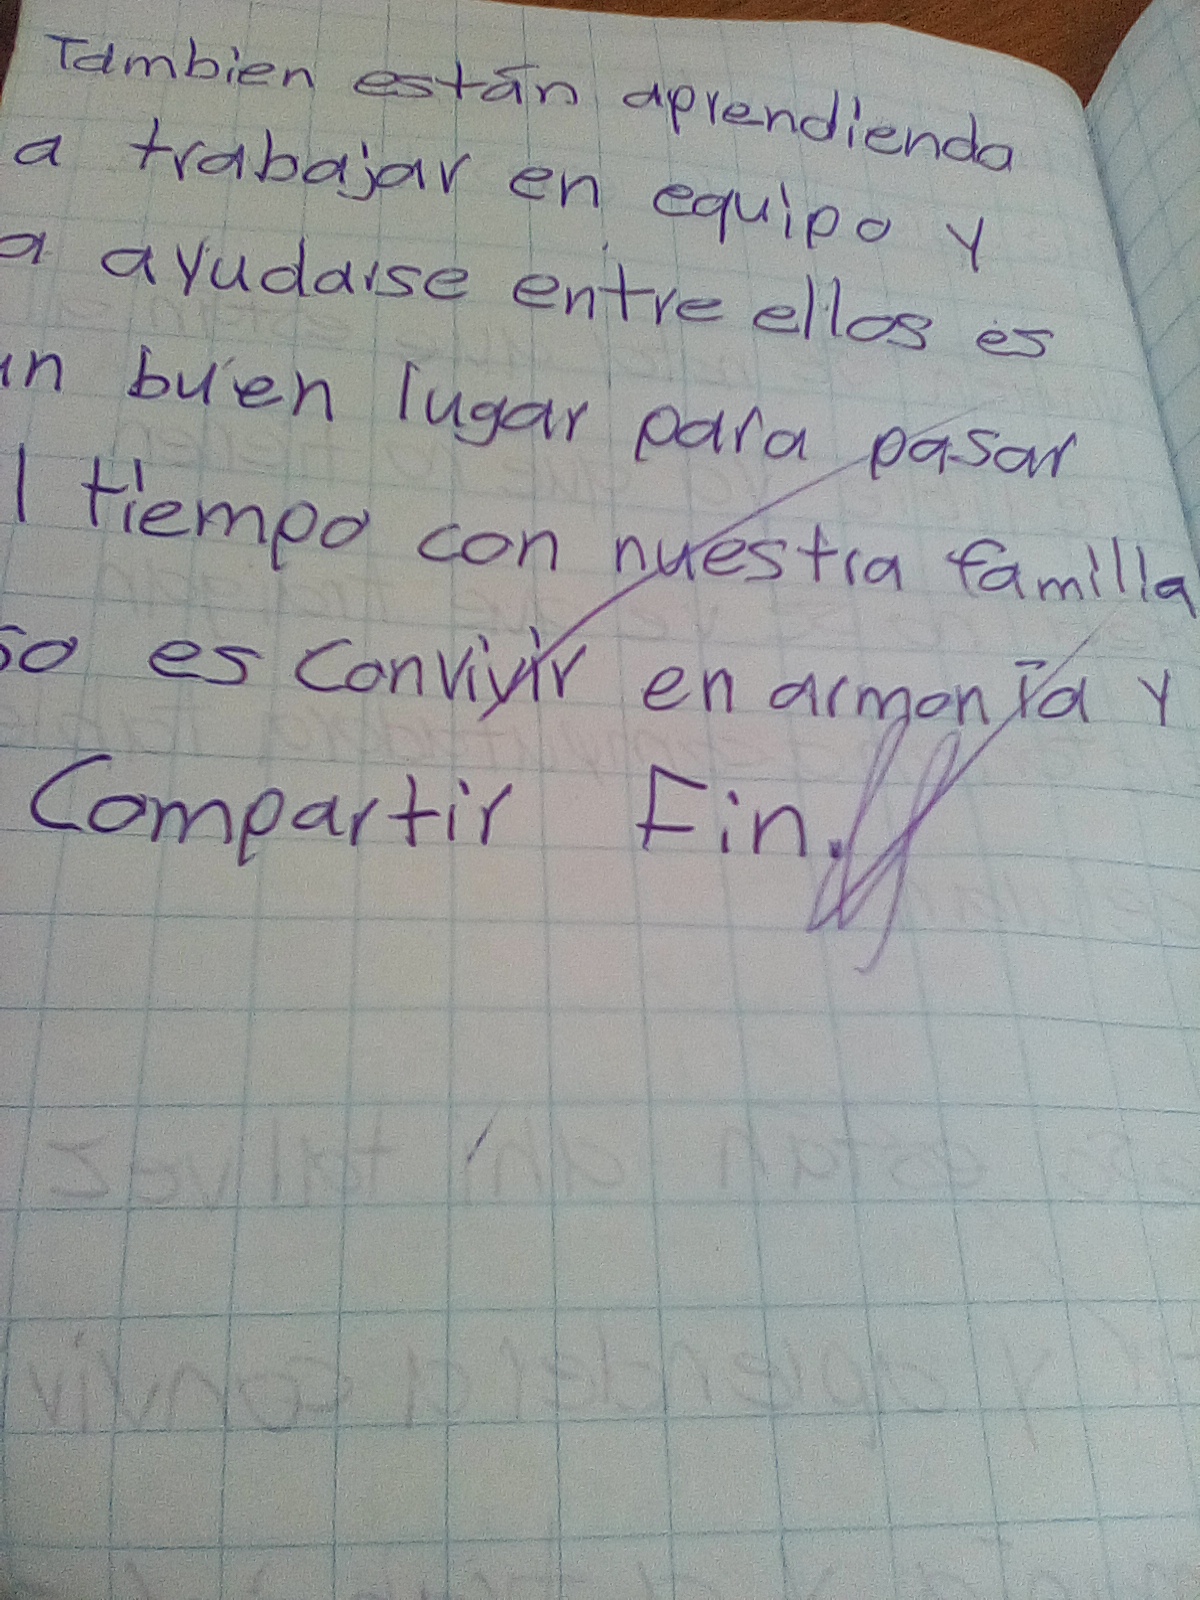 Tambien están aprendiendo
a trabajar en equipo y
a ayudarse entre ellos es
un buen lugar para pasar
l tiempo con nuestra familia
so es convivir en armonía y
Compartir Fin.